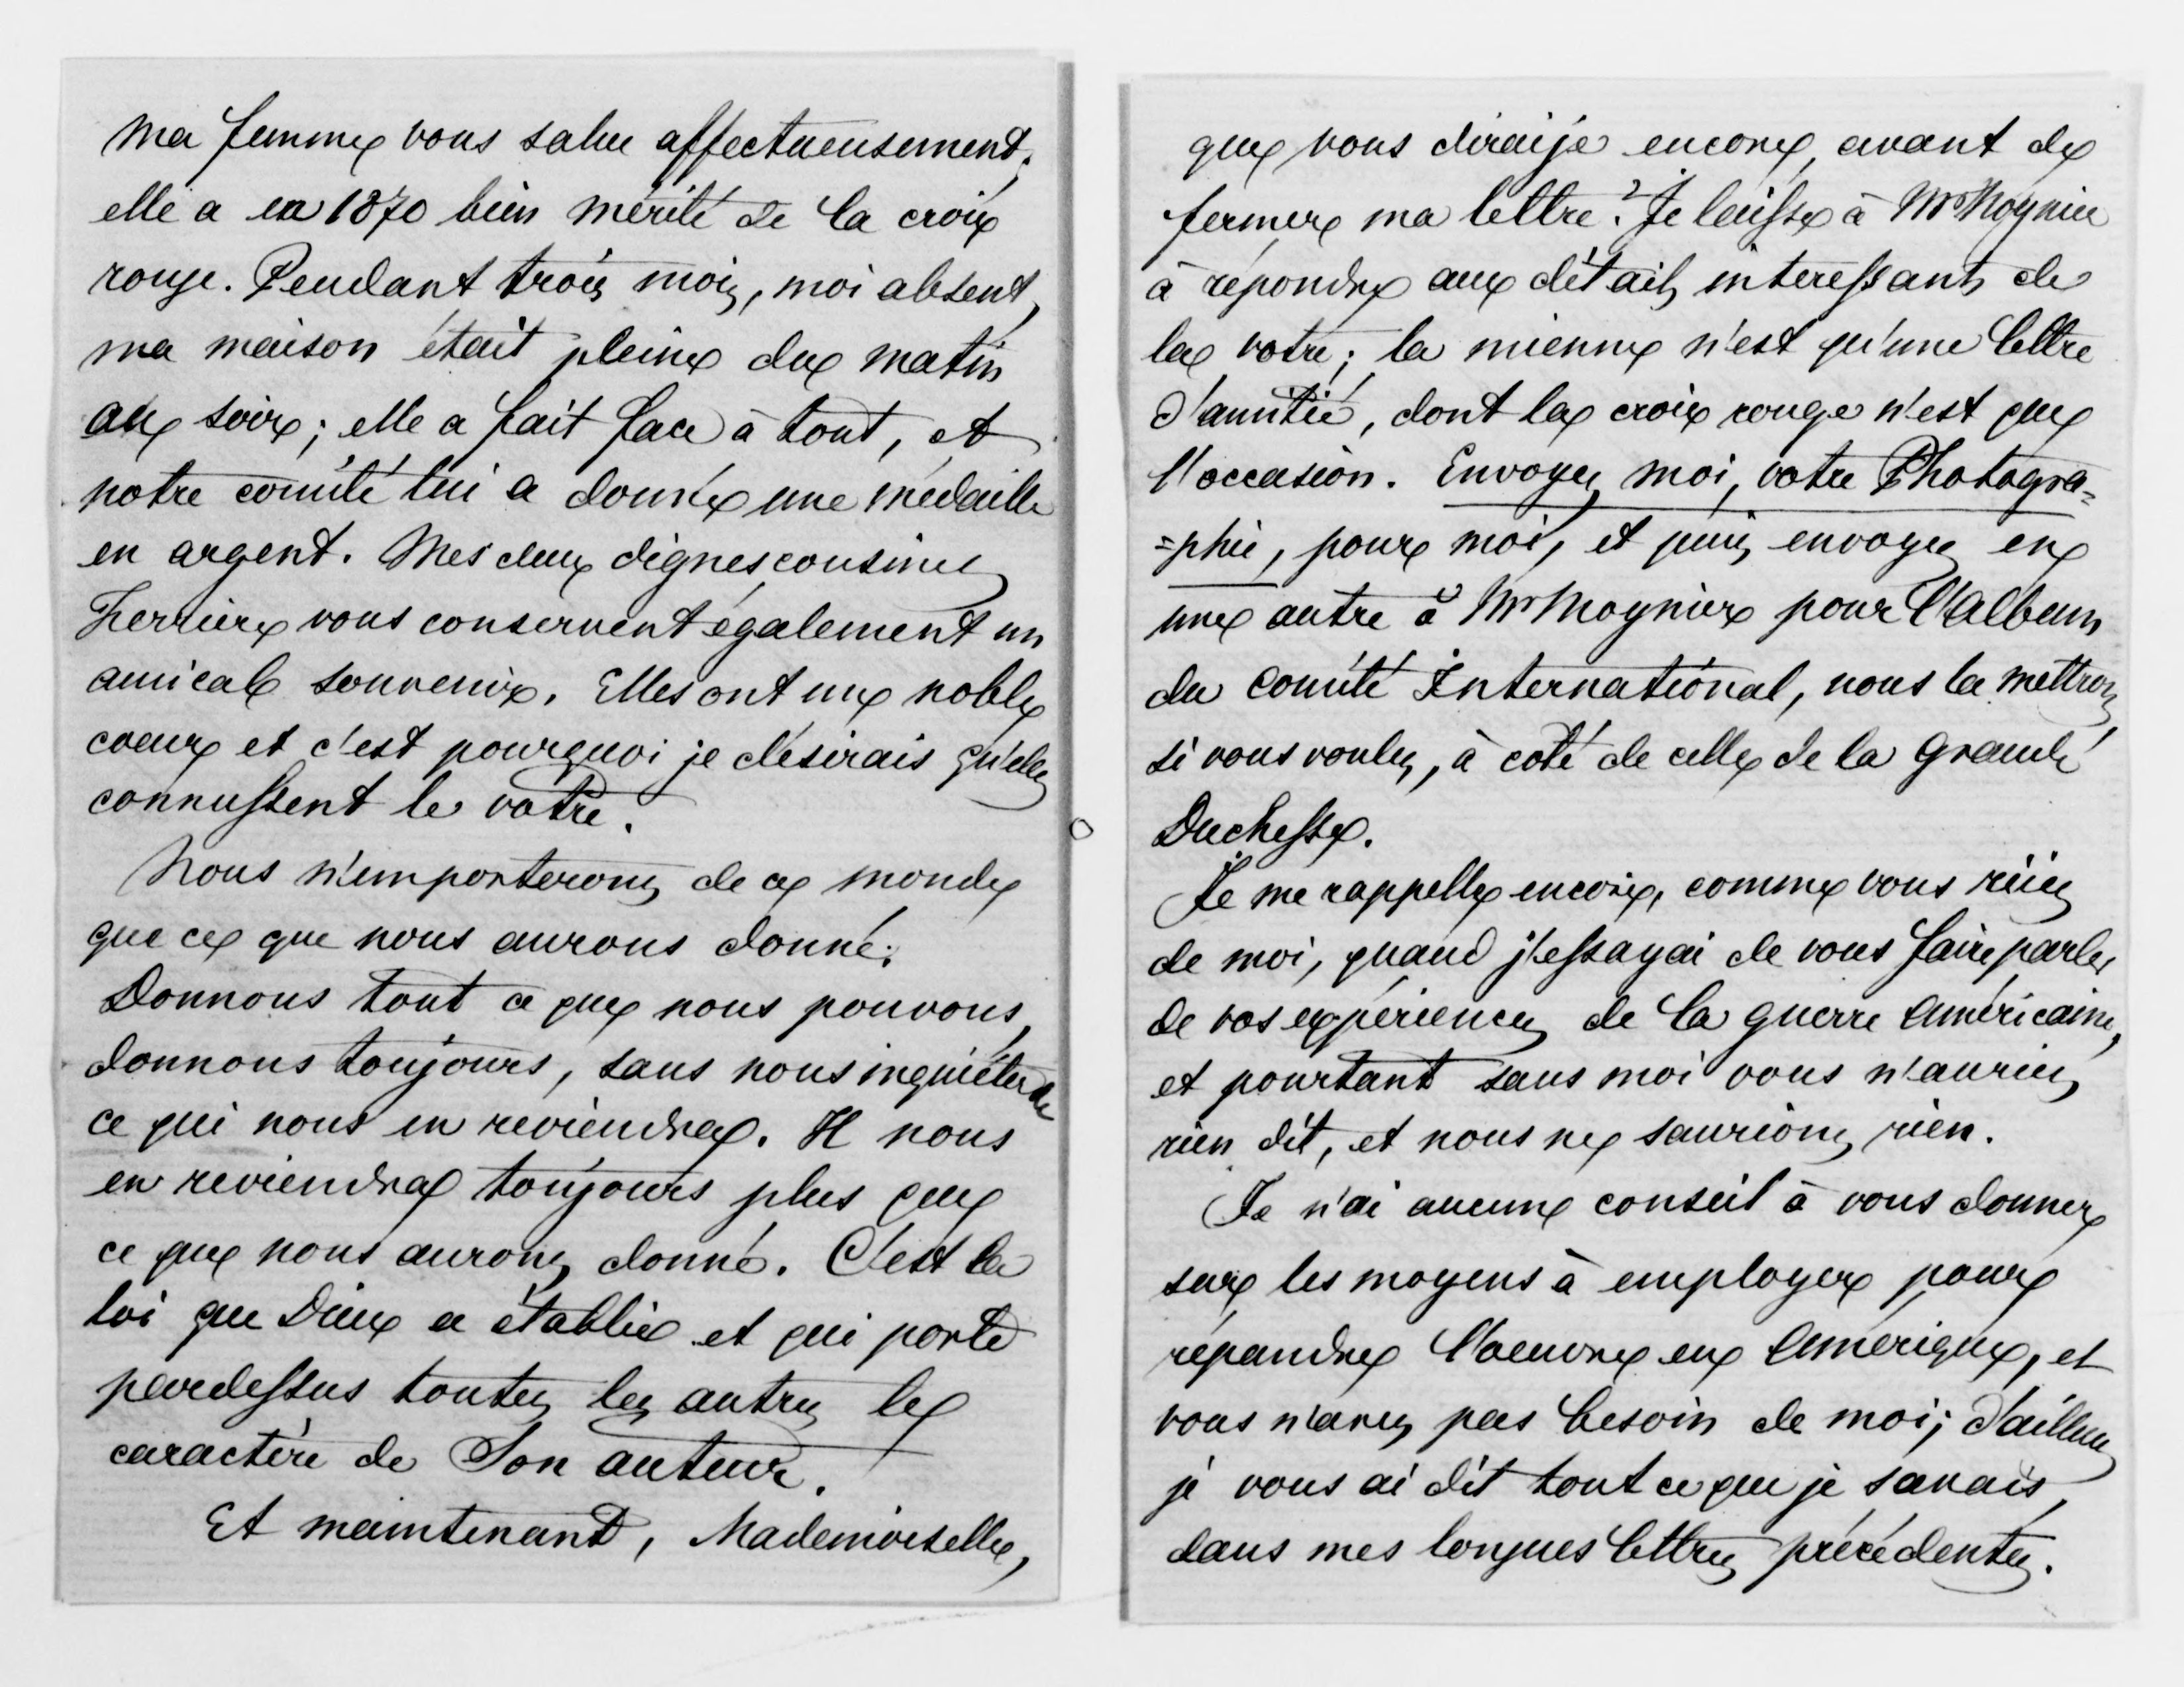 Ma femme vous salue affectueusement,
elle a en 1870 bien mérité de la croix
rouge. Pendant trois mois, moi absent,
ma maison était pleine du matin
au soir ; elle a fait face à tout, et
notre comité lui a donné une médaille
en argent. Mes deux dignes cousines
Ferrière vous conservent également un
amical souvenir. Elles ont un noble
coeur et c'est pourquoi je désirais qu'elles
connussent le votre.
Nous n'emporterons de ce monde
que ce que nous aurons donné.
Donnons tout ce que nous pouvons,
donnons toujours, sans nous inquiéter de
ce qui nous en reviendra. Il nous
en reviendra toujours plus que
ce que nous aurons donné. C'est la
loi que Dieu a établie et qui porte
pardessus toutes les autres le
caractère de Son auteur.
Et maintenant, Mademoiselle,
que vous diraije encore, avant de
fermer ma lettre ? Je laisse à Mr Moynier
à répondre aux détails interessants de
la votre ; la mienne n'est qu'une lettre
d'amitié, dont la croix rouge n'est que
l'occasion. Envoyez moi, votre Photogra=
=phie, pour moi, et puis envoyez en
une autre à Mr Moynier pour l'Album
du comité International, nous la mettrons
si vous voulez, à coté de celle de la Grande
Duchesse.
Je me rappelle encore, comme vous riiez
de moi, quand j'essayai de vous faire parler
de vos expériences de la guerre Américaine,
et pourtant sans moi vous n'auriez
rien dit, et nous ne saurions rien.
Je n'ai aucune conseil à vous donner
sur les moyens à employer pour
répandre l'oeuvre en Amérique, et
vous n'avez pas besoin de moi ; d'ailleurs
je vous ai dit tout ce que je savais,
dans mes longues lettres précédentes.